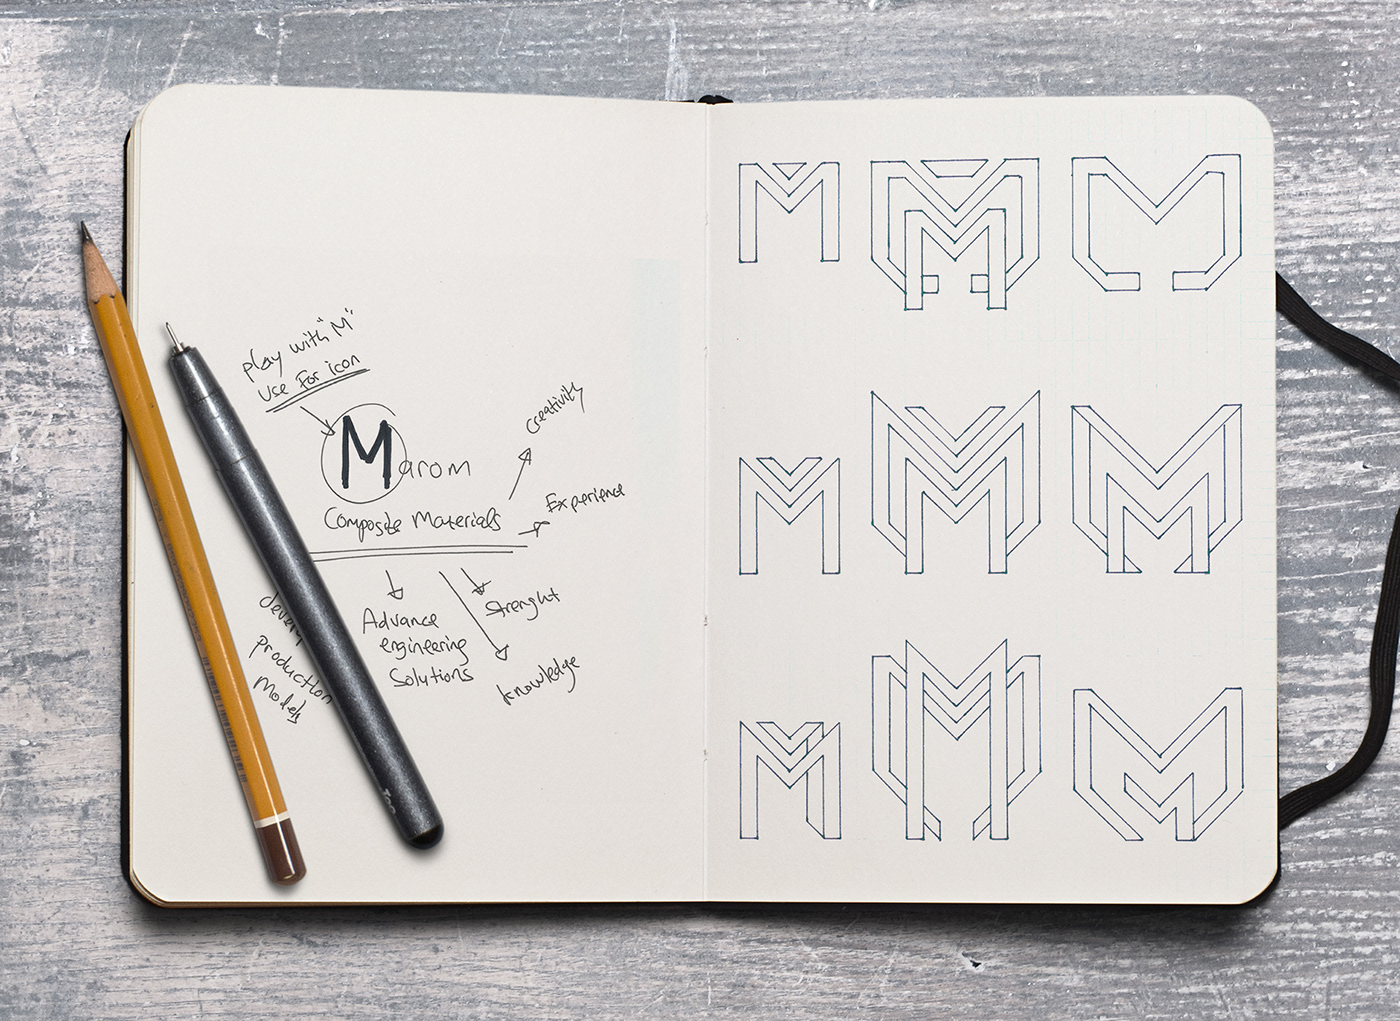 play with "M"
use For icon
Marom
Composite Materials
Creativity
Experience
Strenght
knowledge
Advance
engineering
Solutions
production
Models